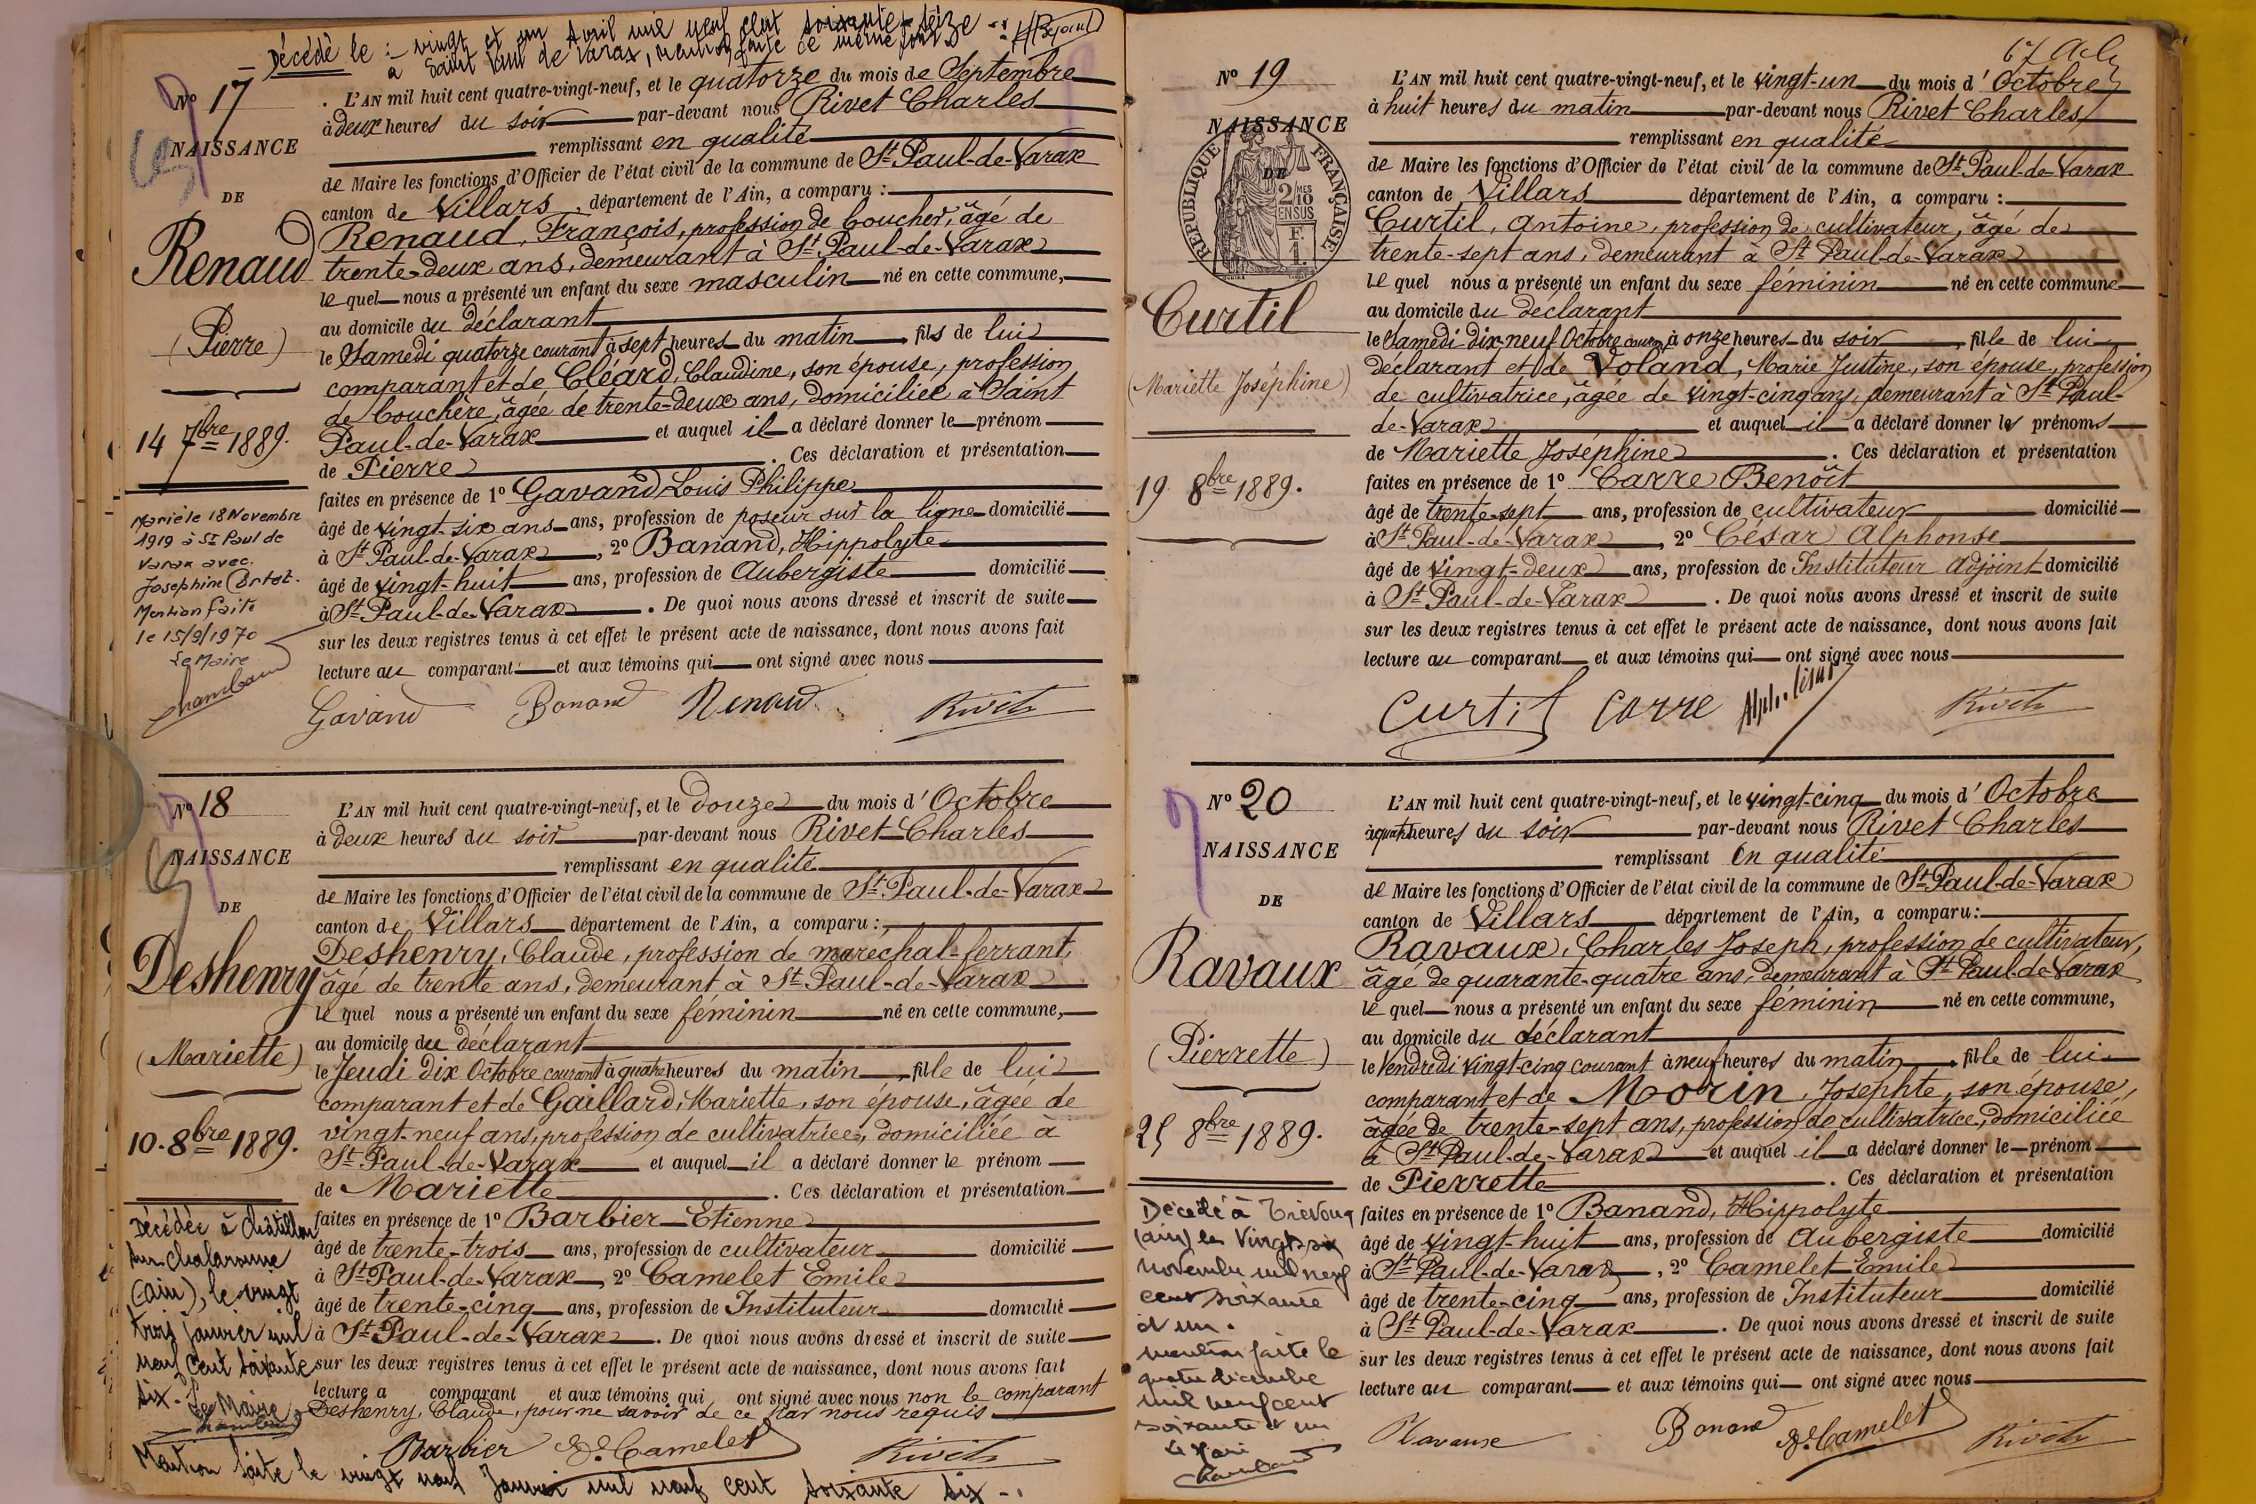 Décédé le : vingt et un Avril mil neuf cent soixante seize
à Saint Paul de Varax, mention faite ce même jour
No 17
NAISSANCE
DE
Renaud
(Pierre)
14 7bre 1889.
Marié le 18 Novembre
1919 à St Paul de
Varax avec
Josephine
Mention faite
le 15/9/1970
Le Maire
Chambaud
L'AN mil huit cent quatre-vingt-neuf, et le quatorze du mois de Septembre
à deux heures du soir par-devant nous Rivet Charles
remplissant en qualité
de Maire les fonctions d'Officier de l'état civil de la commune de St Paul-de-Varax
canton de Villars, département de l'Ain, a comparu :
Renaud, François, profession de boucher, âgé de
trente-deux ans, demeurant à St Paul-de-Varax
le quel nous a présenté un enfant du sexe masculin né en cette commune,
au domicile du déclarant
le Samedi quatorze courant à sept heures du matin, fils de lui
comparant et de Cléard, Claudine, son épouse, profession
de bouchère, âgée de trente-deux ans, domiciliée à Saint
Paul-de-Varax et auquel il a déclaré donner le prénom
de Pierre. Ces déclaration et présentation
faites en présence de 1o Gavand Louis Philippe
âgé de vingt-six ans ans, profession de poseur sur la ligne domicilié
à St Paul-de-Varax, 2o Banand, Hippolyte
âgé de vingt-huit ans, profession de Aubergiste domicilié
à St Paul-de-Varax. De quoi nous avons dressé et inscrit de suite
sur les deux registres tenus à cet effet le présent acte de naissance, dont nous avons fait
lecture au comparant et aux témoins qui ont signé avec nous
Gavand Bonand Renaud Rivet
No 18
NAISSANCE
DE
Deshenry
(Mariette)
10. 8bre 1889.
Décédée à Châtillon
sur Chalaronne
(Ain), le vingt
trois janvier mil
neuf cent soixante
six. Le Maire
Chambaud
L'AN mil huit cent quatre-vingt-neuf, et le douze du mois d'Octobre
à deux heures du soir par-devant nous Rivet Charles
remplissant en qualité
de Maire les fonctions d'Officier de l'état civil de la commune de St Paul-de-Varax
canton de Villars département de l'Ain, a comparu :
Deshenry, Claude, profession de maréchal-ferrant,
âgé de trente ans, demeurant à St Paul-de-Varax
le quel nous a présenté un enfant du sexe féminin né en cette commune,
au domicile du déclarant
le Jeudi dix Octobre courant à quatre heures du matin, fille de lui
comparant et de Gaillard, Mariette, son épouse, âgée de
vingt-neuf ans, profession de cultivatrice, domiciliée à
St Paul-de-Varax et auquel il a déclaré donner le prénom
de Mariette. Ces déclaration et présentation
faites en présence de 1o Barbier Etienne
âgé de trente-trois ans, profession de cultivateur domicilié
à St Paul-de-Varax, 2o Camelet Emile
âgé de trente-cinq ans, profession de Instituteur domicilié
à St Paul-de-Varax. De quoi nous avons dressé et inscrit de suite
sur les deux registres tenus à cet effet le présent acte de naissance, dont nous avons fait
lecture a comparant et aux témoins qui ont signé avec nous non le comparant
Deshenry, Claude, pour ne savoir de ce par nous requis
Barbier Camelet Rivet
Mention faite le vingt neuf Janvier mil neuf cent soixante six
No 19
NAISSANCE
DE
RÉPUBLIQUE FRANÇAISE
2 MES
10
EN SUS
F.
1.
Curtil
(Mariette Joséphine)
19 8bre 1889.
L'AN mil huit cent quatre-vingt-neuf, et le vingt-un du mois d'Octobre
à huit heures du matin par-devant nous Rivet Charles
remplissant en qualité
de Maire les fonctions d'Officier de l'état civil de la commune de St Paul-de-Varax
canton de Villars département de l'Ain, a comparu :
Curtil, Antoine, profession de cultivateur, âgé de
trente-sept ans, demeurant à St Paul-de-Varax
le quel nous a présenté un enfant du sexe féminin né en cette commune
au domicile du déclarant
le Samedi dix-neuf Octobre courant à onze heures du soir, fille de lui
déclarant et de Voland, Marie Justine, son épouse, profession
de cultivatrice, âgée de vingt-cinq ans, demeurant à St Paul-
de-Varax et auquel il a déclaré donner les prénoms
de Mariette Joséphine. Ces déclaration et présentation
faites en présence de 1o Carre Benoît
âgé de trente-sept ans, profession de cultivateur domicilié
à St Paul-de-Varax, 2o César Alphonse
âgé de vingt-deux ans, profession de Instituteur Adjoint domicilié
à St Paul-de-Varax. De quoi nous avons dressé et inscrit de suite
sur les deux registres tenus à cet effet le présent acte de naissance, dont nous avons fait
lecture au comparant et aux témoins qui ont signé avec nous
Curtil Carre Alph. César Rivet
No 20
NAISSANCE
DE
Ravaux
(Pierrette)
25 8bre 1889.
Décédée à Trévoux
(ain) le vingt six
novembre mil neuf
cent soixante
et un.
mention faite le
quatre décembre
mil neuf cent
soixante et un
Le Maire
Chambaud
L'AN mil huit cent quatre-vingt-neuf, et le vingt-cinq du mois d'Octobre
à quatre heures du soir par-devant nous Rivet Charles
remplissant en qualité
de Maire les fonctions d'Officier de l'état civil de la commune de St Paul-de-Varax
canton de Villars département de l'Ain, a comparu :
Ravaux, Charles Joseph, profession de cultivateur,
âgé de quarante-quatre ans, demeurant à St Paul-de-Varax
le quel nous a présenté un enfant du sexe féminin né en cette commune,
au domicile du déclarant
le Vendredi vingt-cinq courant à neuf heures du matin, fille de lui
comparant et de Morin, Josephte, son épouse,
âgée de trente-sept ans, profession de cultivatrice, domiciliée
à St Paul-de-Varax et auquel il a déclaré donner le prénom
de Pierrette. Ces déclaration et présentation
faites en présence de 1o Banand, Hippolyte
âgé de vingt-huit ans, profession de Aubergiste domicilié
à St Paul-de-Varax, 2o Camelet Emile
âgé de trente-cinq ans, profession de Instituteur domicilié
à St Paul-de-Varax. De quoi nous avons dressé et inscrit de suite
sur les deux registres tenus à cet effet le présent acte de naissance, dont nous avons fait
lecture au comparant et aux témoins qui ont signé avec nous
Ravaux Bonand Camelet Rivet